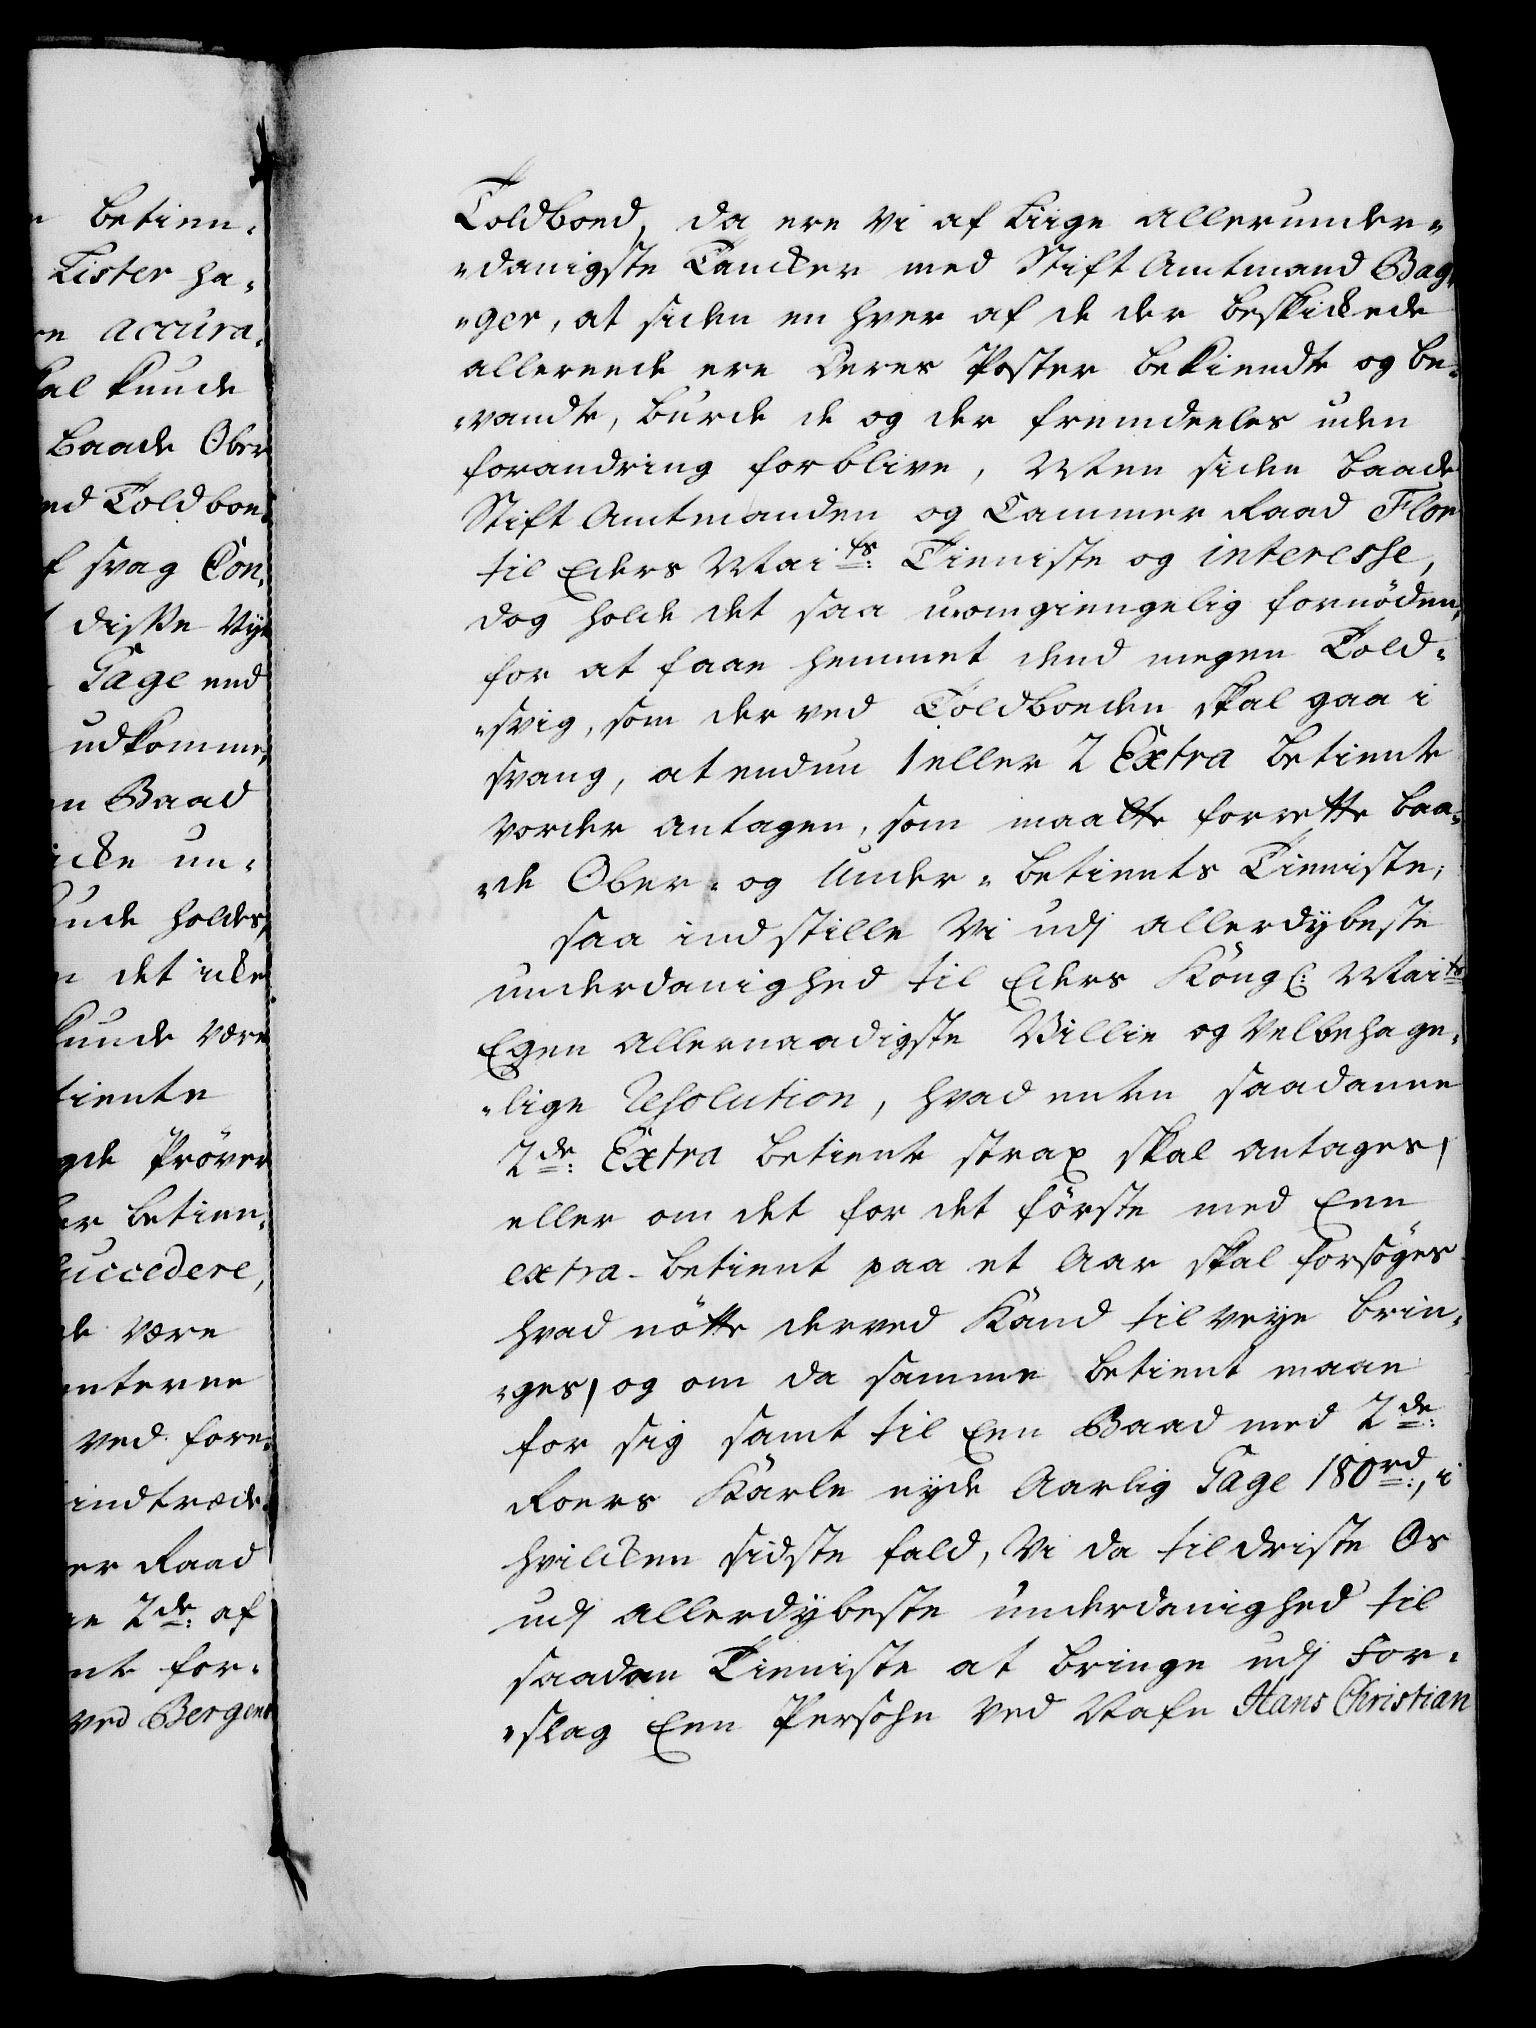 n betien-
Lister ha-
re accura-
kal kunde
baade Ober
ed Toldboe
f svag Con-
disse Vy
Gage end
udkomme,
en Baad
icke un-
unde holdes,
n det icke
kunde være
tiente
gde Pröver
er betien-
succedere,
de være
enterne
ved fore-
indtræde
er Raad
ne 2de: af
nt for-
ved Bergens
Toldboed, da ere vi af liige allerunder-
-danigste Tancker med Stift Amtmand Bag-
-ger, at siden en hver af de der beskickede
allereede ere deres Poster bekiendte og be-
-vandte, burde de og der fremdeeles uden
forandring forblive, Men siden baade
Stift Amtmanden og Cammer Raad Flor
til Eders Maits: Tienniste og interesse,
dog holde det saa uomgiengelig fornöden,
for at faae hemmet dend megen Told-
-svig, som der ved Toldboeden skal gaa i
svang, at endnu 1 eller 2 Extra betiente
vorder antagen, som maatte forrette baa-
-de Ober- og Under-betients Tienniste;
saa indstille vi udj allerdybeste
underdanighed til Eders Kongl: Maits
Egen allernaadigste Villie og Velbehage-
-lige Resolution, hvad enten saadanne
2de: Extra betiente strax skal antages,
eller om det for det förste med Een
extra-betient paa et Aar skal forsöges
hvad nötte derved kand tilveye brin-
-ges, og om da samme betient maae
for sig samt til Een Baad med 2de:
Roers Karle nyde Aarlig Gage 180rd:, i
hvilcken sidste fald, vi da tildriste Os
udj allerdybeste underdanighed til
saadan Tienniste at bringe udj For-
-slag Een Persohn ved Nafn Hans Christian